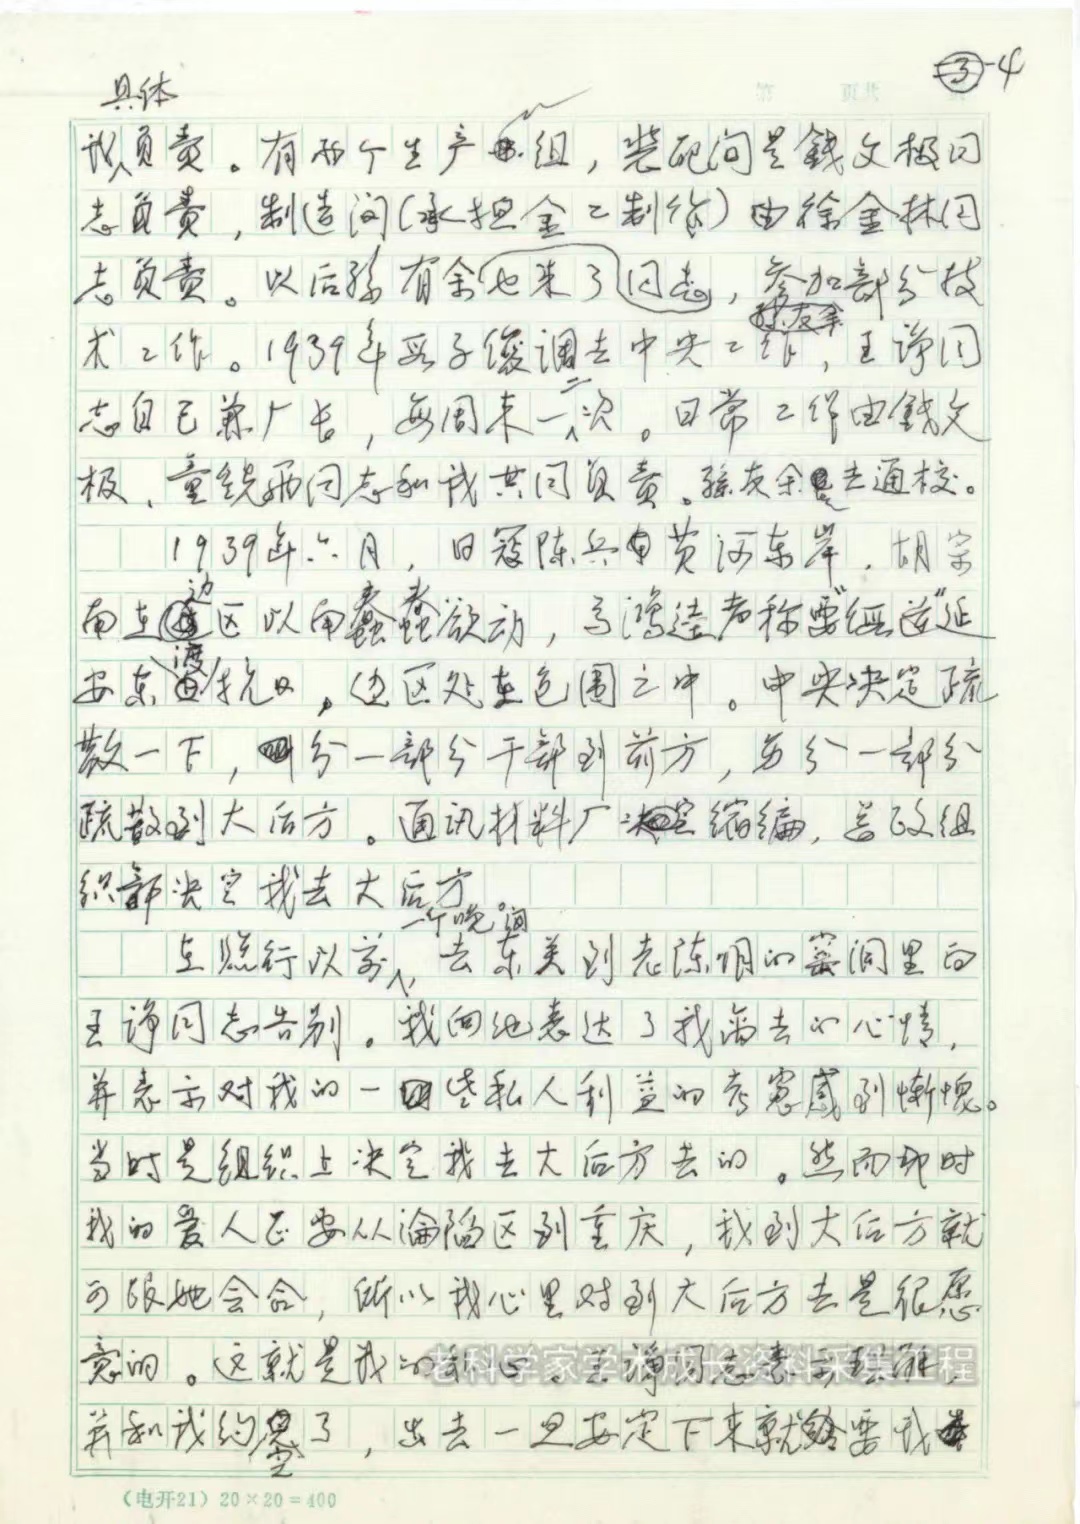 ③-4
第 页共 页
具体
我负责。有两个生产组，装配间是錢文极同
志负责，制造间(承担金工制作)由徐金林同
志负责。以后孫有余也来了同志，参加部分技
孫友余
术工作。1939年段子俊调去中央工作，王诤同
志自己兼厂长，每周来一二次。日常工作由錢文
极、童铣两同志和我共同负责。孫友余去通校。
1939年六月，日寇陈兵黄河东岸，胡宗
边
南在区以南蠢蠢欲动，马鸿逵者称要“經道”延
渡
安东抗日，边区处在包围之中。中央决定疏
散一下，分一部分干部到前方，另分一部分
疏散到大后方。通讯材料厂决定缩编，总政组
织部决定我去大后方。
一个晚间
在临行以前，去东关到老陈明的窑洞里向
王诤同志告别。我向他表达了我离去的心情，
并表示对我的一些私人利益的考慮感到惭愧。
当时是组织上决定我去大后方去的。然而那时
我的爱人正要从淪陷区到重庆，我到大后方就
可跟她会合，所以我心里对到大后方去是很愿
意的。这就是我的私心。王诤同志表示理解，
并和我约定了，出去一旦安定下来就要我
老科学家学术成长资料采集工程
(电开21) 20×20=400